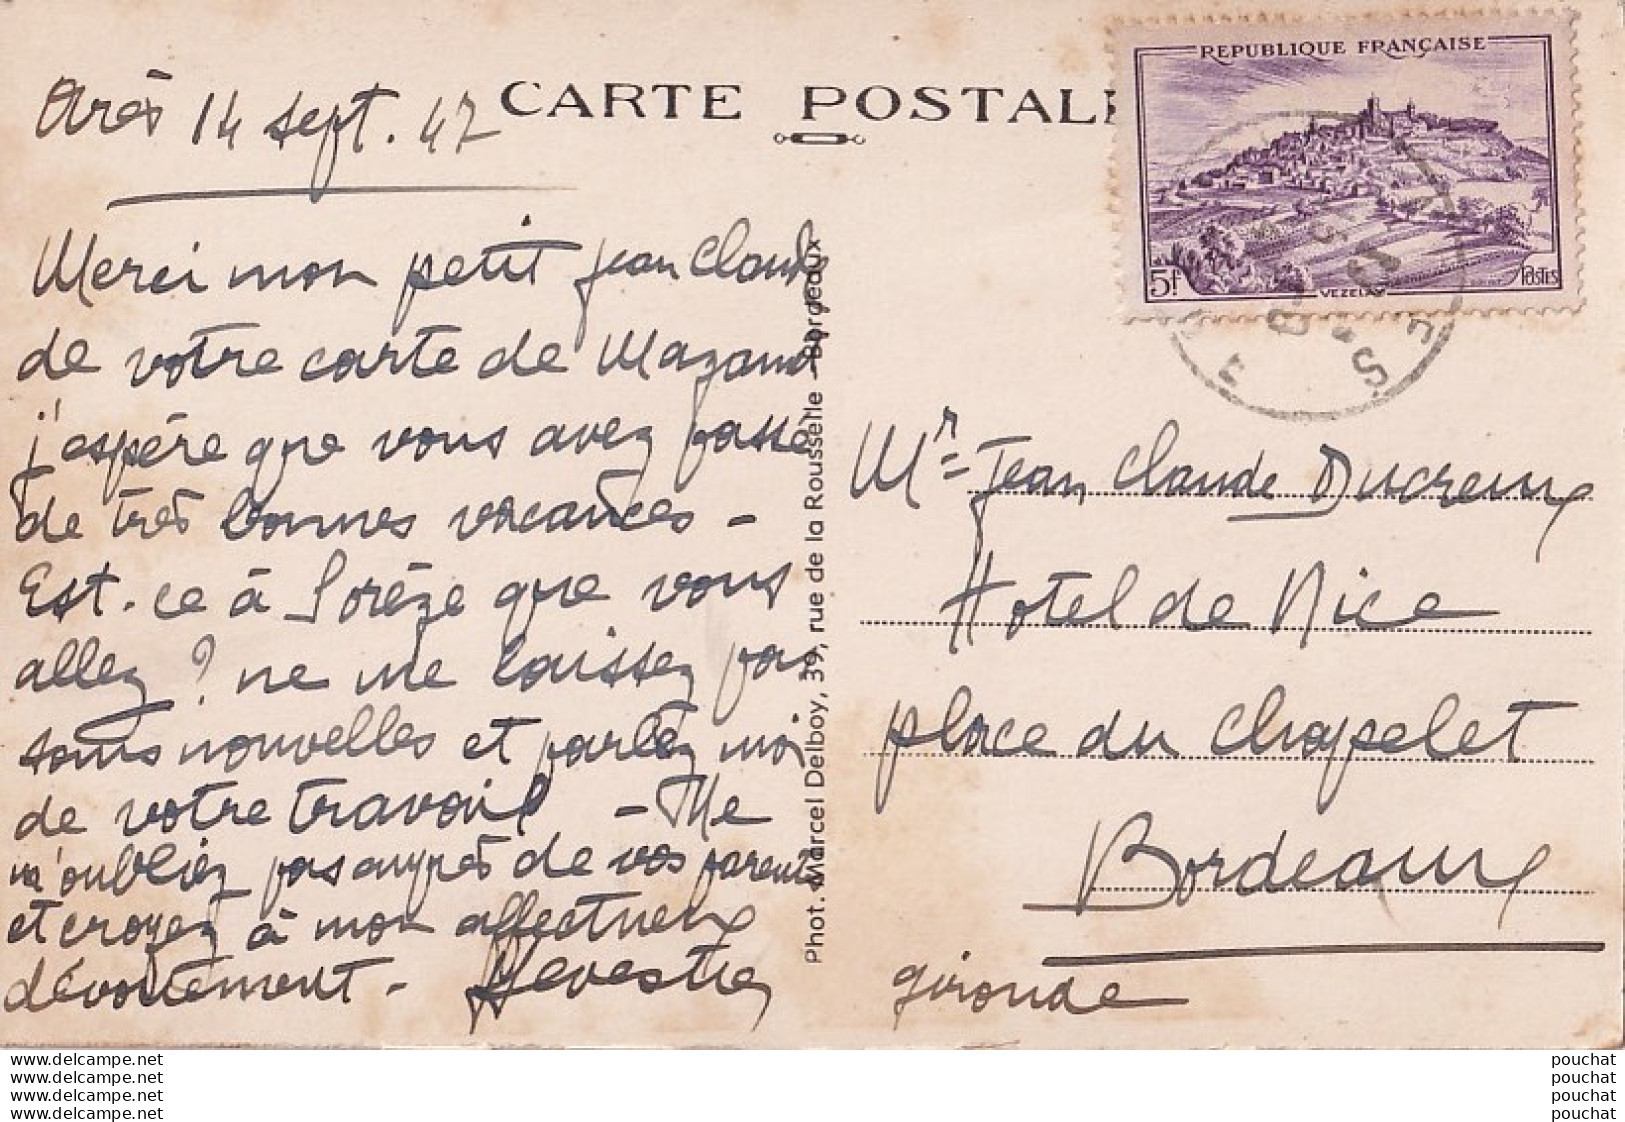 CARTE POSTALE
REPUBLIQUE FRANÇAISE
5f
VEZELAY
POSTES
Arès 14 sept. 47
Merci mon petit Jean Claude
de votre carte de Mazamet
j'espère que vous avez passé
de très bonnes vacances -
Est-ce à Sorèze que vous
allez ? ne me laissez pas
sans nouvelles et parlez moi
de votre travail - Ne
m'oubliez pas auprès de vos parents
et croyez à mon affectueux
dévouement -
Phot. Marcel Delboy, 39, rue de la Rousselle - Bordeaux
Mr = Jean Claude Ducreux
Hotel de Nice
place du Chapelet
Bordeaux
Gironde
www.delcampe.net
www.delcampe.net
www.delcampe.net
www.delcampe.net
pouchat
pouchat
pouchat
pouchat